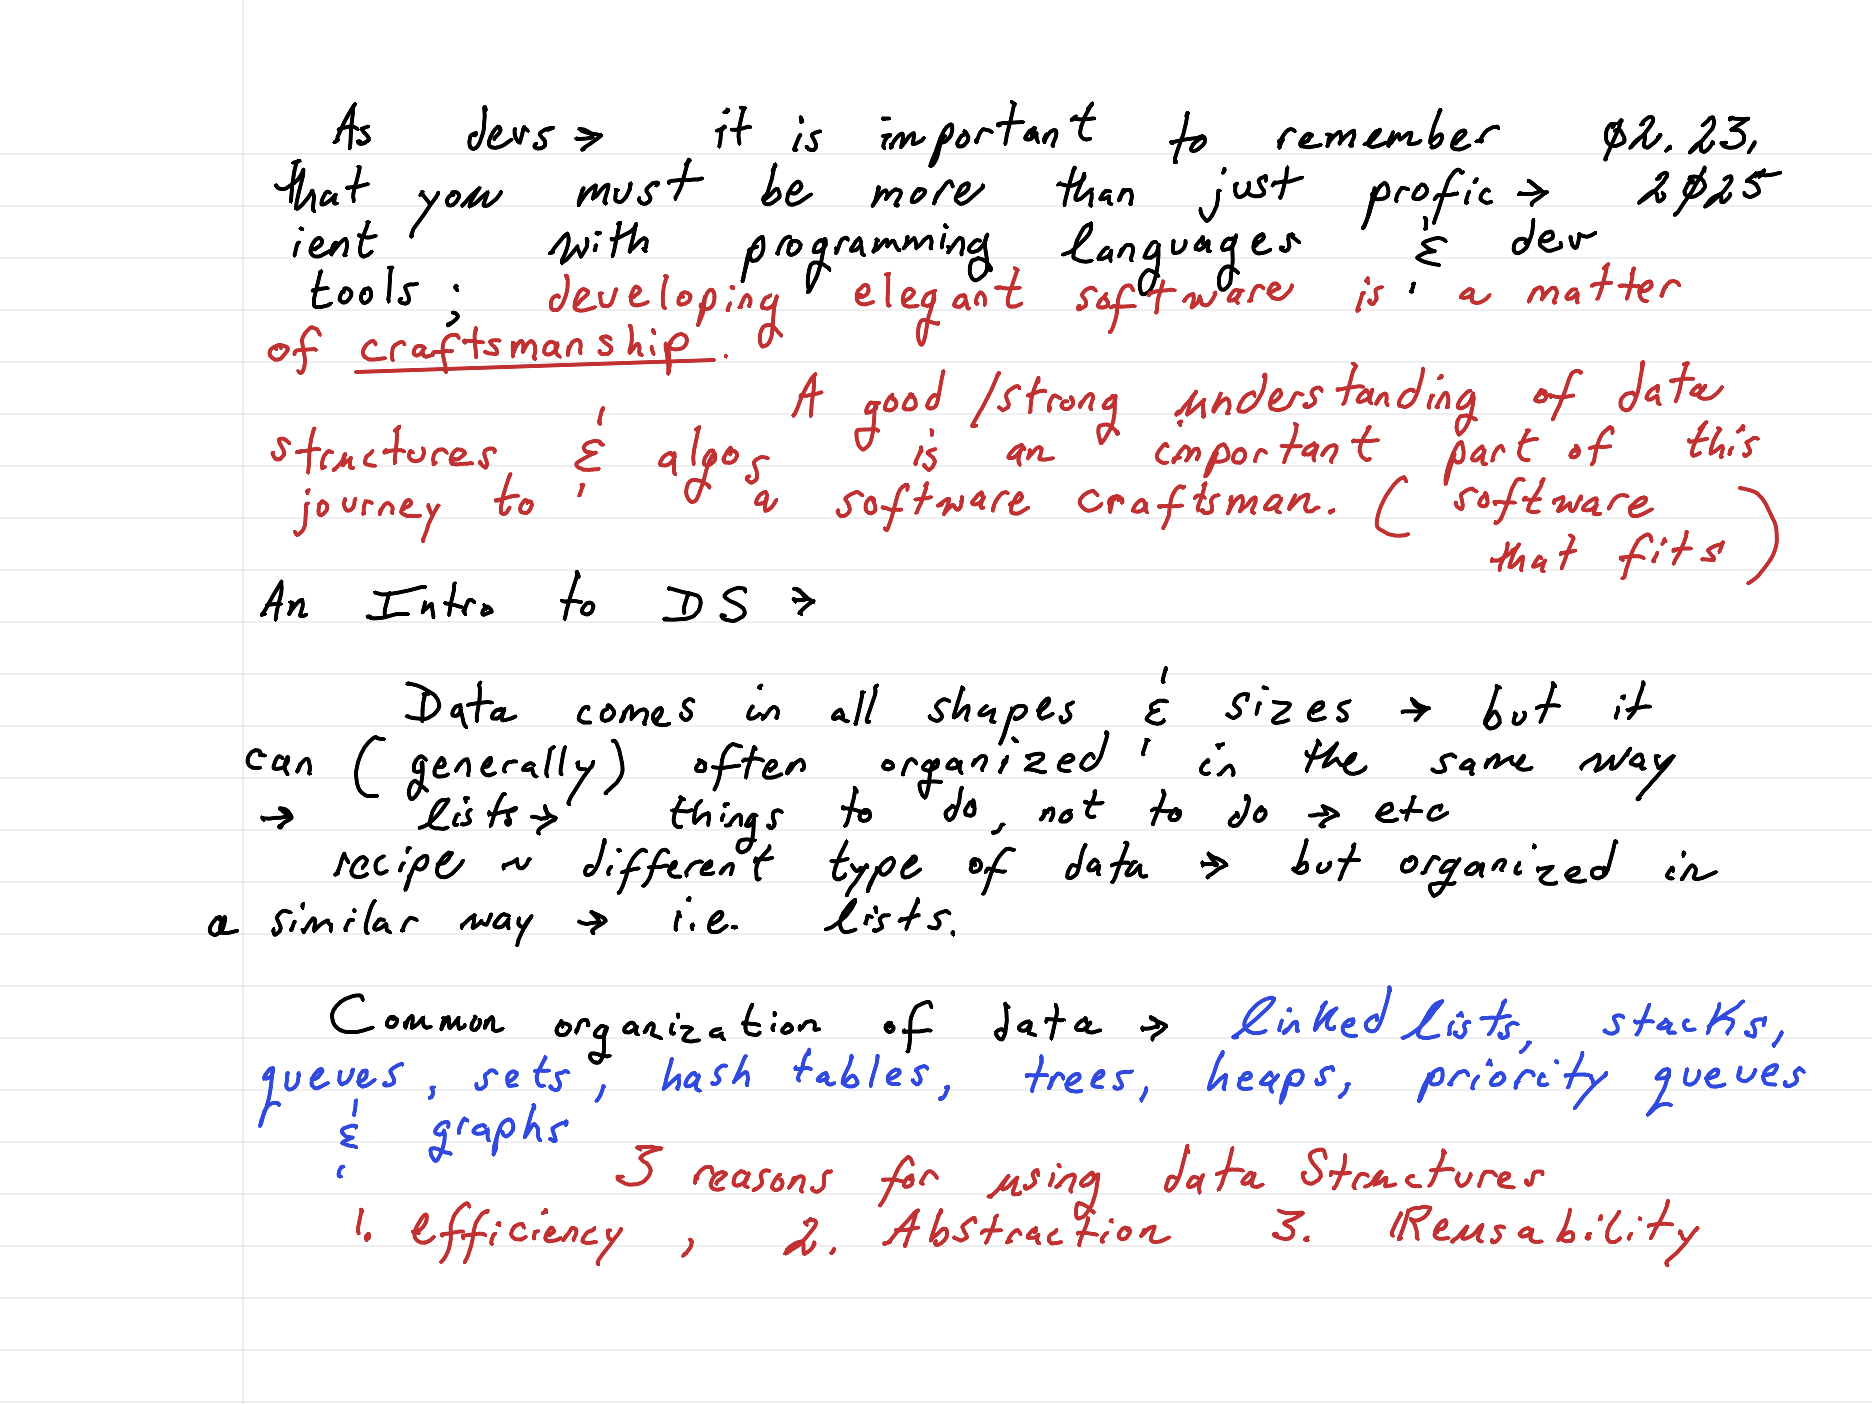 As devs → it is important to remember Ø2.23,
that you must be more than just profic → 2Ø25
ient with programming languages & dev
tools; developing elegant software is a matter
of craftsmanship.
A good/strong understanding of data
structures & algos is an important part of this
journey to a software craftsman. (software
that fits)
An Intro to DS →
Data comes in all shapes & sizes → but it
can (generally) often organized in the same way
→ lists → things to do, not to do → etc
recipe ~ different type of data → but organized in
a similar way → i.e. lists.
Common organization of data → linked lists, stacks,
queues, sets, hash tables, trees, heaps, priority queues
& graphs
3 reasons for using data Structures
1. efficiency, 2. Abstraction 3. Reusability